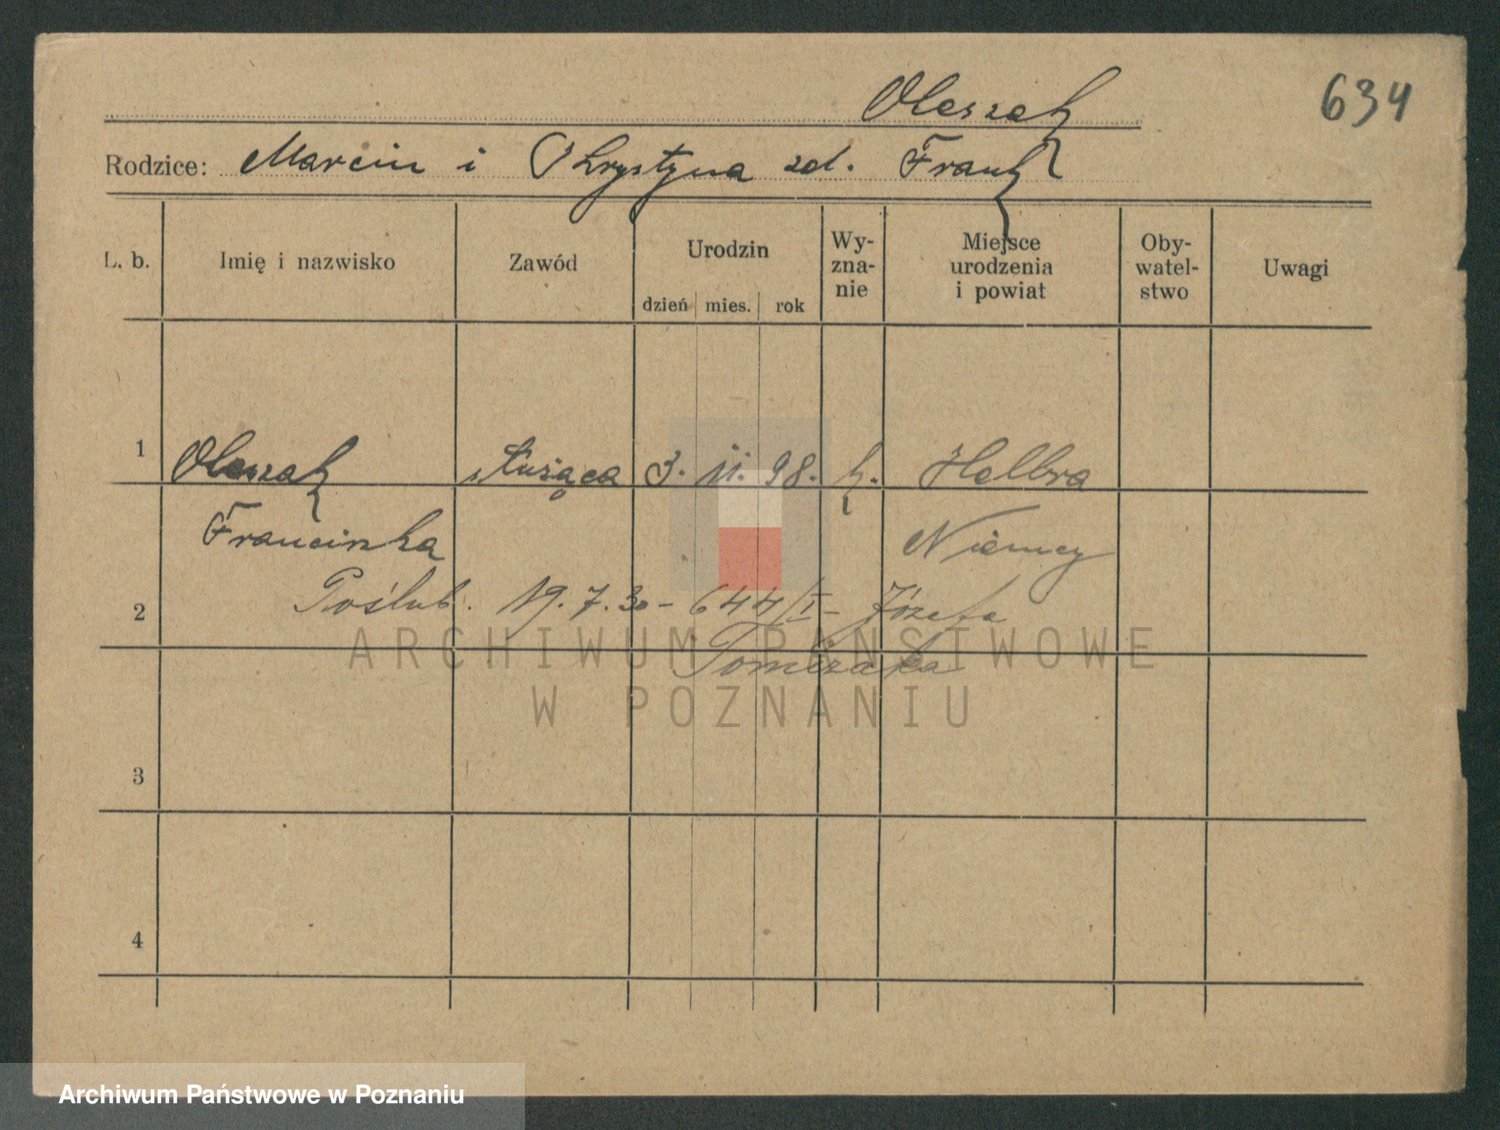 634
Oleszak
Rodzice: Marcin i Chrystyna zd. Frank
L. b. Imię i nazwisko Zawód Urodzin dzień mies. rok Wy-zna-nie Miejsce urodzenia i powiat Oby-watel-stwo Uwagi
1 Oleszak służąca 3. 11. 98. k. Helbra
Franciszka Niemcy
2 Poślub. 19.7.30 - 644/I - Józefa
Tomczaka
ARCHIWUM PAŃSTWOWE
W POZNANIU
3
4
Archiwum Państwowe w Poznaniu